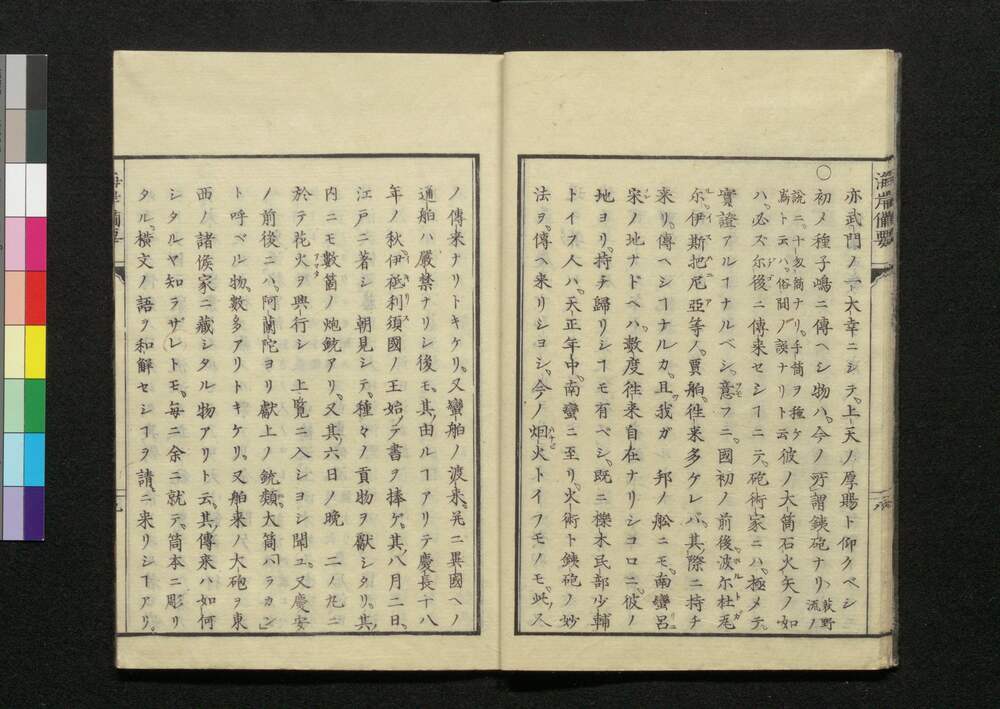 海岸備要
亦武門ノ一大幸ニシテ。上天ノ厚賜ト仰クベシ
〇初メ種子嶋ニ傳ヘシ物ハ。今ノ所謂銕砲ナリ。荻野流ノ
說ニ。十匁筒ナリ。手筒ヲ種ケ
嶌ト云ハ。俗間ノ誤ナリト云彼ノ大筒石火矢ノ如キ
ハ。必ズ尓後ニ傳来セシヿニテ。砲術家ニハ。極メテ
實證アルヿナルベシ。意フニ。國初ノ前後波尓杜瓦
尓。伊斯把尼亞等ノ。賈舶。徃来多ケレバ。其際ニ持チ
来リ。傳ヘシヿナルカ。且我ガ 邦ノ舩ニモ。南蠻呂
宋ノ地ナドヘハ。數度徃来自在ナリシコロニ。彼ノ
地ヨリ。持チ歸リシヿモ有ベシ。既ニ櫟木民部少輔
トイフ人ハ。天正年中。南蠻ニ至リ。火術ト銕砲ノ妙
法ヲ。傳ヘ来リシヨシ。今ノ烟火トイフモノモ。此人
ノ傳来ナリトキケリ。又蠻舶ノ渡来。并ニ異國ヘノ
通舶ハ嚴禁ナリシ後モ。其由ルヿアリテ慶長十八
年ノ秋伊祗利須國ノ王始テ書ヲ捧ゲ。其八月二日。
江戸ニ著シ 朝見シテ。種々ノ貢物ヲ獻シタリ。其
内ニモ數箇ノ炮銃アリ。又其六日ノ晩 二ノ丸ニ
於テ花火ヲ興行シ 上覧ニ入シヨシ聞ユ。又慶安
ノ前後ニハ。阿蘭陀ヨリ獻上ノ銃類。大筒ハラカン
ト呼ベル物。數多アリトキケリ。又舶来ノ大砲ヲ東
西ノ諸侯家ニ藏シタル物アリト云。其傳来ハ如何
シタルヤ知ラザレトモ。毎ニ余ニ就テ。筒本ニ彫リ
タル。横文ノ語ヲ和解セシヿヲ請ニ来リシヿアリ。